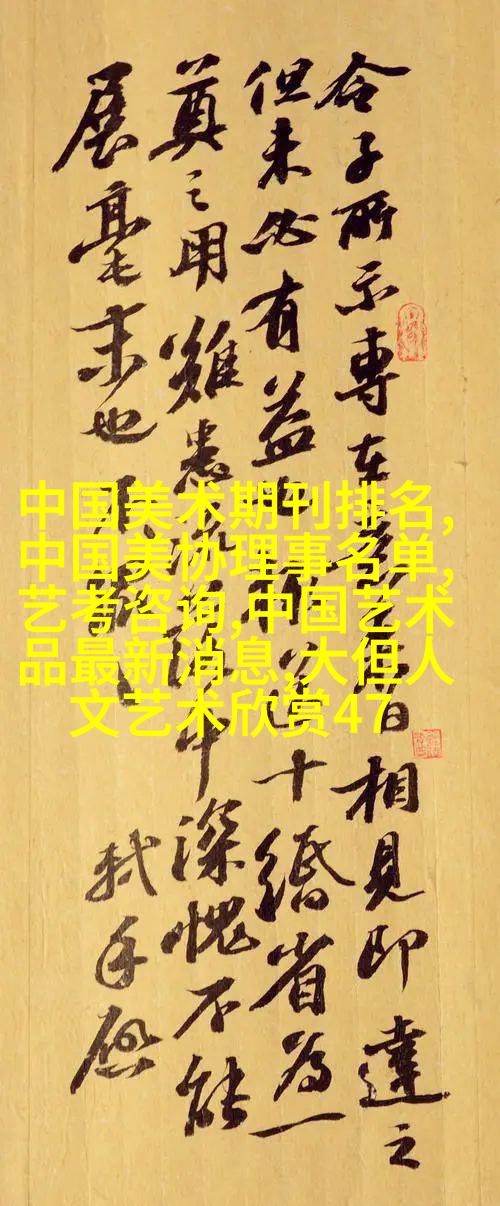 令子所示專在日相見即達之
但未必有益十省為一
奠之用雖中深愧不能
展毫末也
軾手啟
中国美术期刊排名,
中国美协理事名单,
艺考咨询,中国艺术
品最新消息,大但人
文艺术欣赏47